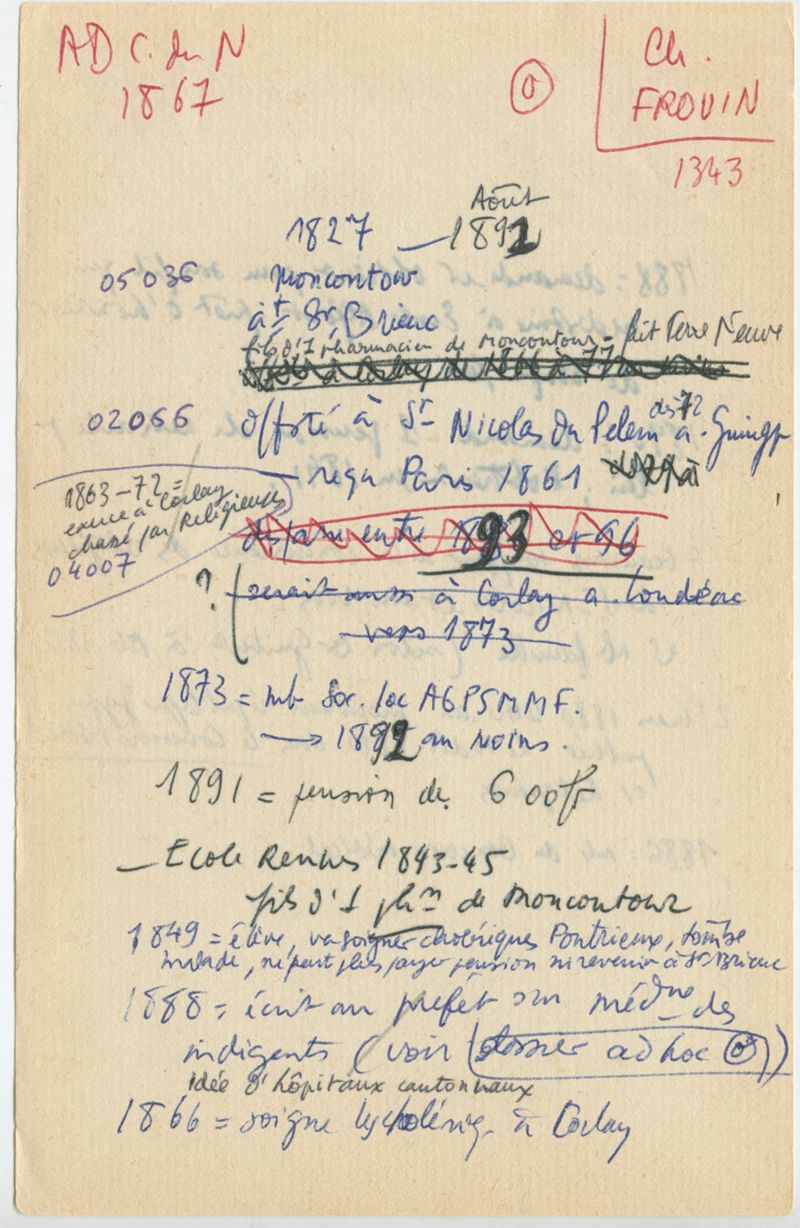 AD C. du N
1867
Ch.
FROUIN
1343
Août
1827 — 1892
05036
Moncontour
àt St Brieuc
fils d'1 pharmacien de Moncontour - fait Terre Neuve
à Corlay de 1866 à 77
02066
off. St Nicolas du Pelem dès 72 a. Guingp
— reçu Paris 1861
1863-72 =
exerce à Corlay
chassé par Religieuses
04007
disparu entre 93 et 96
? serait aussi à Corlay a. Loudéac
vers 1873
1873 = mb Soc. loc AGPSMMF.
→ 1892 au moins.
1891 = pension de 600fr
— Ecole Rennes 1843-45
fils d'1 phm de Moncontour
1849 = élève, va soigner cholériques Pontrieux, tombe
malade, ne peut plus payer pension ni revenir à St Brieuc
1888 = écrit au préfet sur médne des
indigents (voir dossier ad hoc)
idée d'hôpitaux cantonnaux
1866 = soigne les cholériq. à Corlay